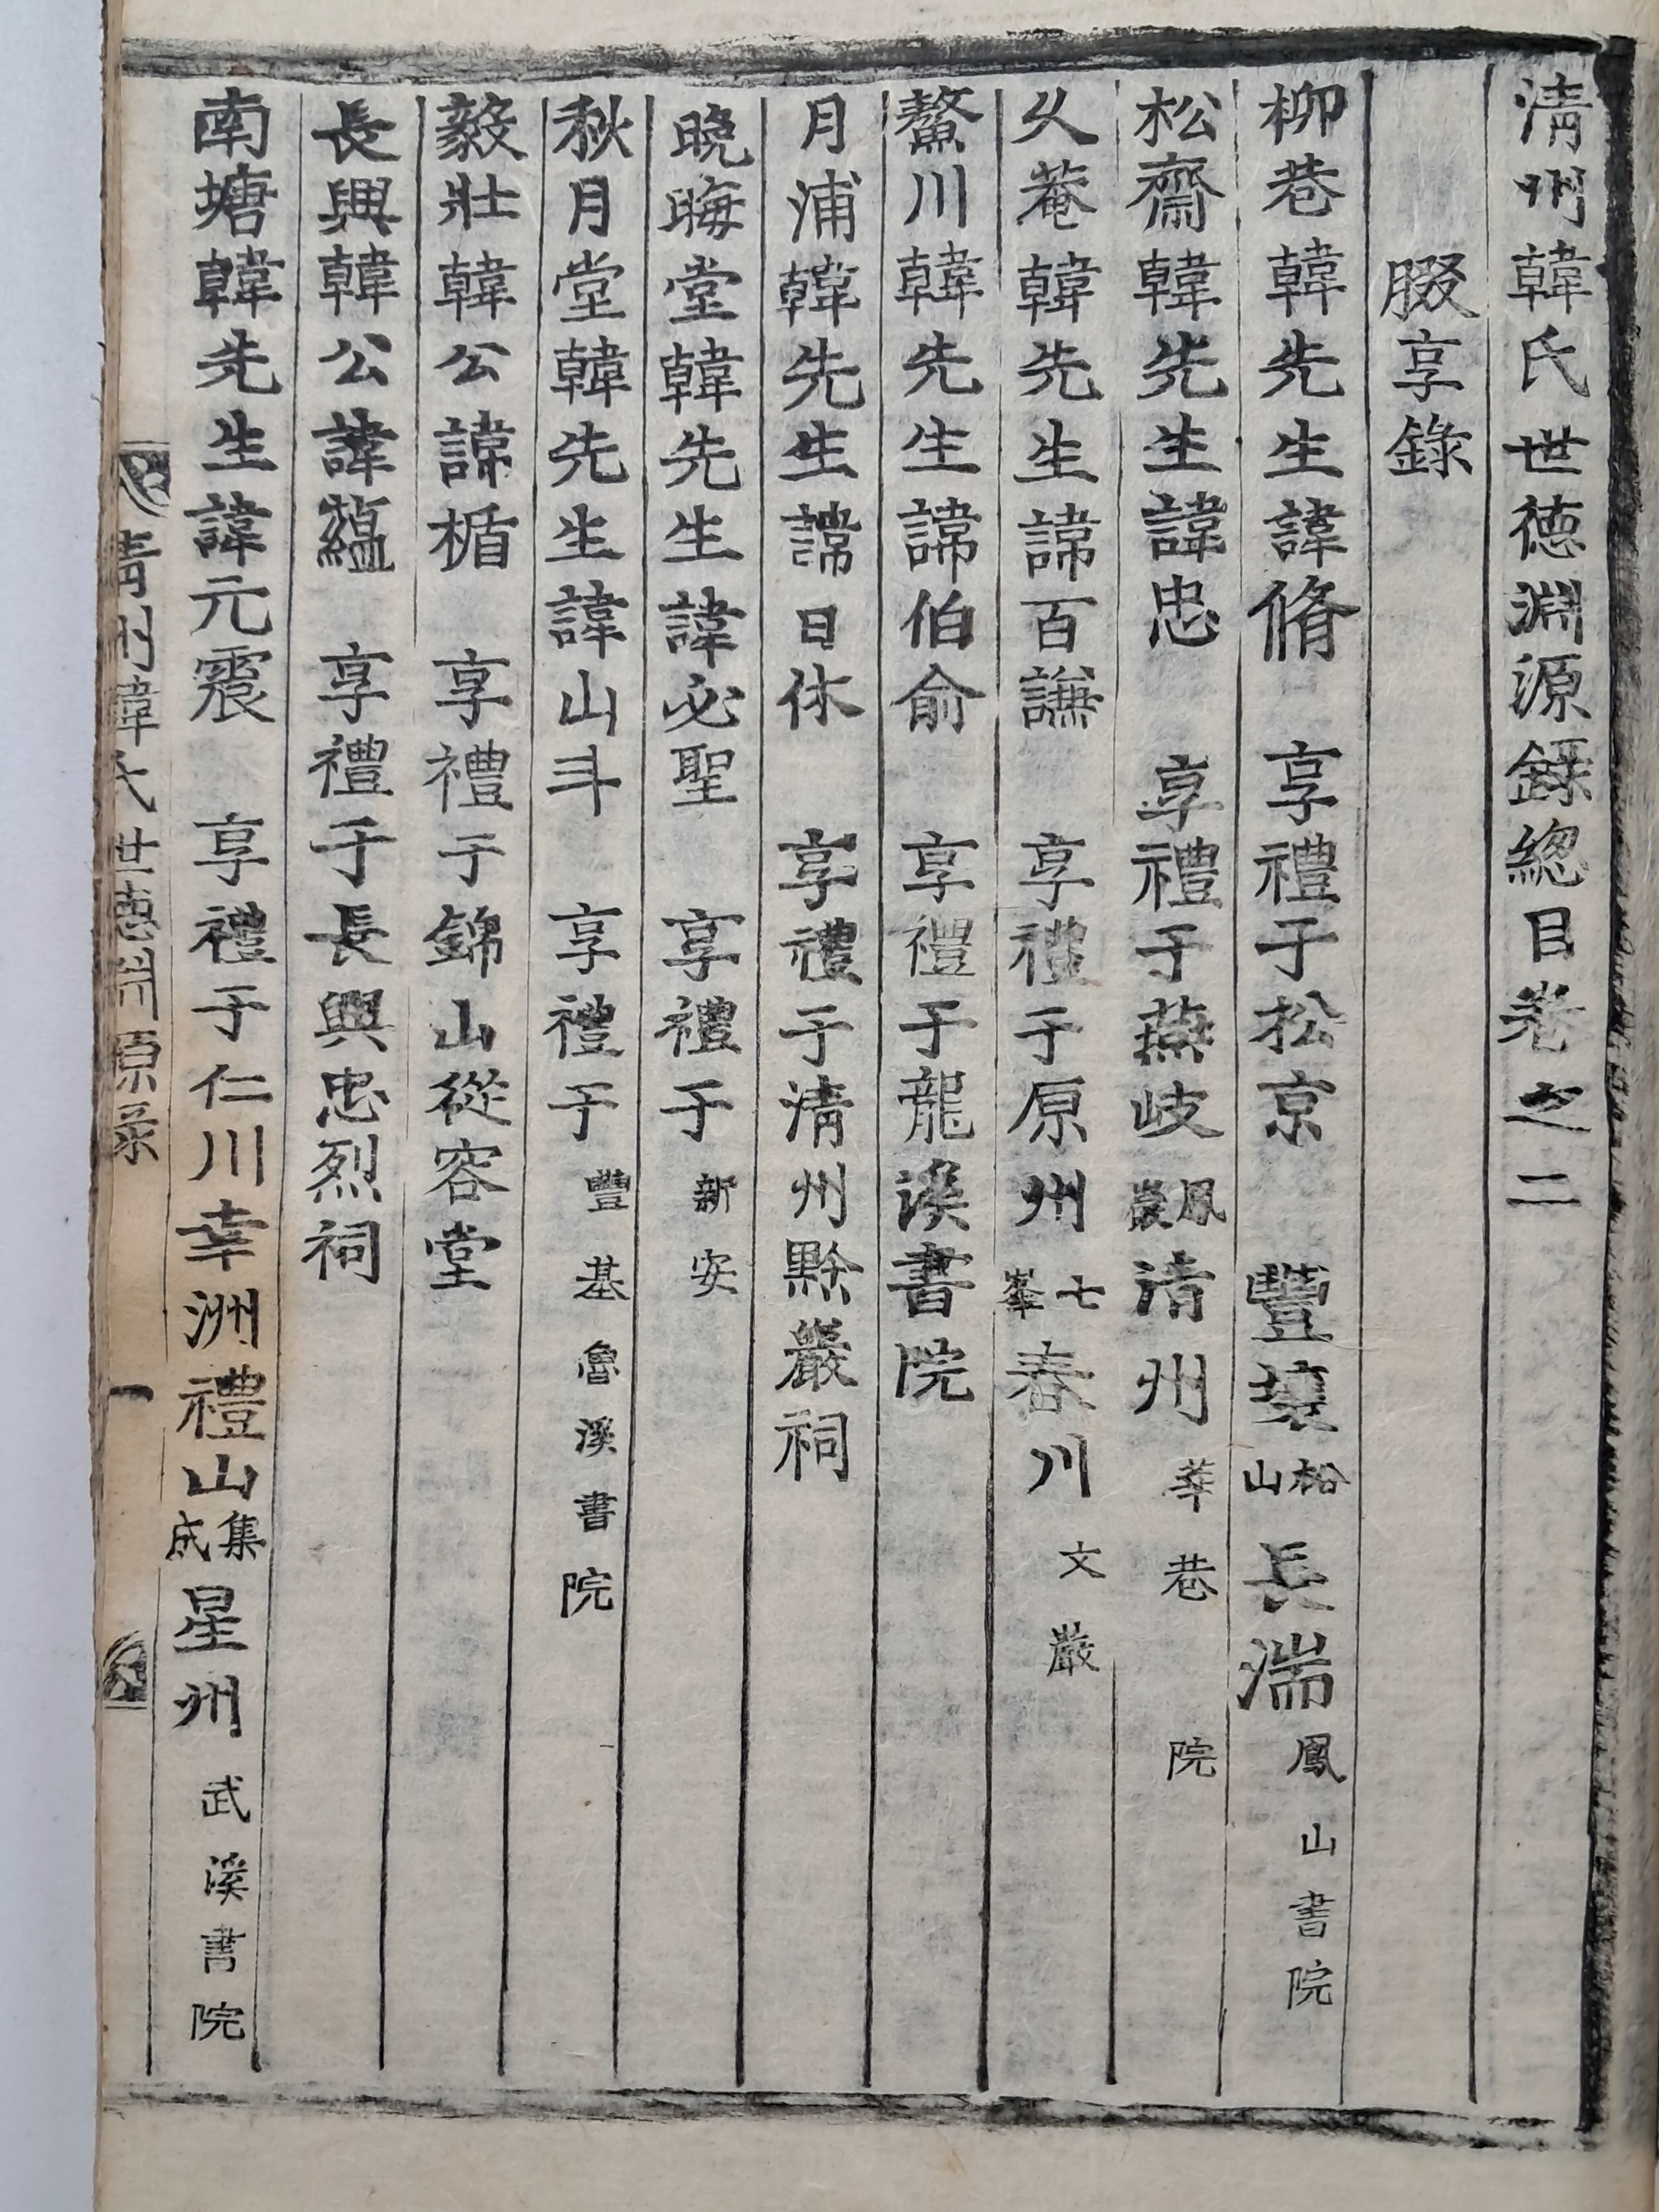 淸州韓氏世德淵源錄總目卷之二
腏享錄
柳巷韓先生諱脩 享禮于松京 豐壤松山長湍鳳山書院
松齋韓先生諱忠 享禮于燕岐鳳巖清州莘巷 院
久菴韓先生諱百謙 享禮于原州七峯春川文巖
鰲川韓先生諱伯兪 享禮于龍溪書院
月浦韓先生諱日休 享禮于清州黔巖祠
晚晦堂韓先生諱必聖 享禮于新安
秋月堂韓先生諱山斗 享禮于豐基魯溪書院
毅壯韓公諱楯 享禮于錦山從容堂
長興韓公諱蘊 享禮于長興忠烈祠
南塘韓先生諱元震 享禮于仁川幸洲禮山集成星州武溪書院
清州韓氏世德淵源錄 一